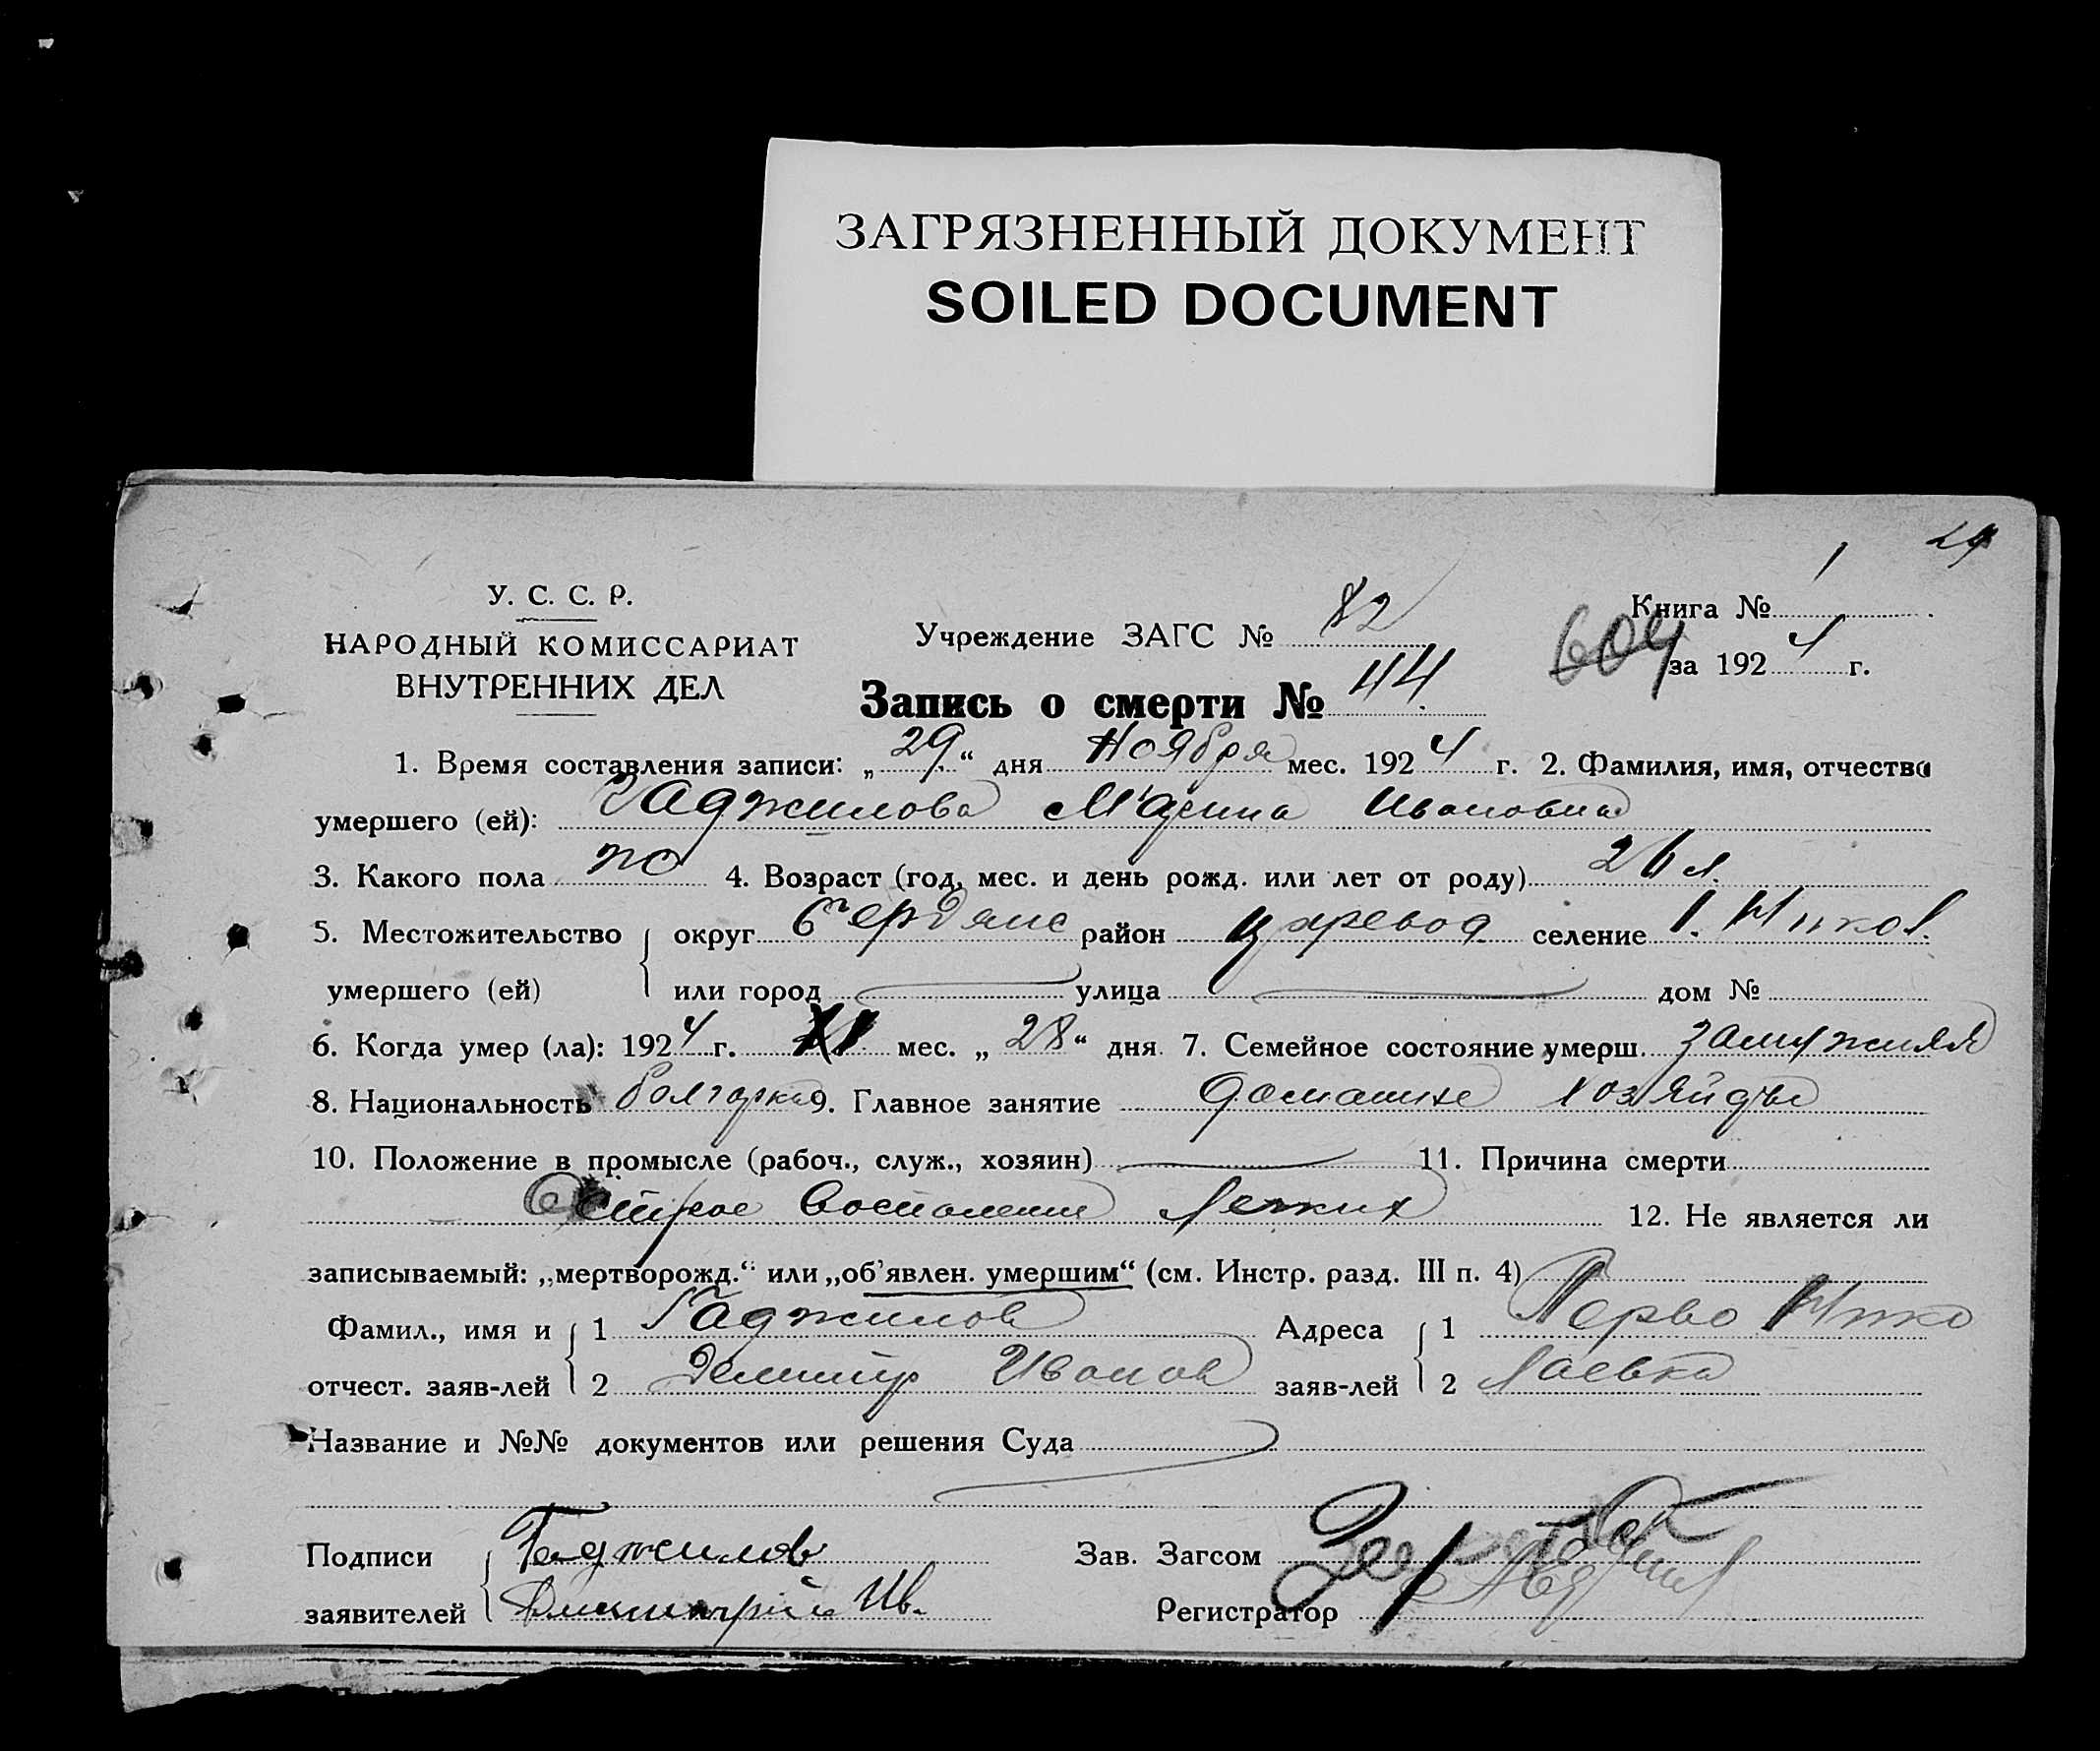 ЗАГРЯЗНЕННЫЙ ДОКУМЕНТ
SOILED DOCUMENT
29
У. С. С. Р.
НАРОДНЫЙ КОМИССАРИАТ
ВНУТРЕННИХ ДЕЛ
Учреждение ЗАГС № 82
Книга № 1
604
за 1924 г.
Запись о смерти № 44.
1. Время составления записи: „29“ дня Ноября мес. 1924 г. 2. Фамилия, имя, отчество
умершего (ей): Гаджилова Марина Ивановна
3. Какого пола жс 4. Возраст (год, мес. и день рожд. или лет от роду) 26 л.
5. Местожительство округ Бердянс район Царевод селение 1. Никол.
умершего (ей) или город улица дом №
6. Когда умер (ла): 1924 г. XI мес. „28“ дня 7. Семейное состояние умерш. замужняя
8. Национальность болгарка 9. Главное занятие домашнее
10. Положение в промысле (рабоч., служ., хозяин) 11. Причина смерти
Острое воспаление легких 12. Не является ли
записываемый: „мертворожд.“ или „об’явлен. умершим“ (см. Инстр. разд. III п. 4)
Фамил., имя и 1 Гаджилов Адреса 1 Перво Нико
отчест. заяв-лей 2 Демитр Иванов заяв-лей 2 лаевка
Название и №№ документов или решения Суда
Подписи Гаджилов Зав. Загсом
заявителей Димитрий Ив. Регистратор